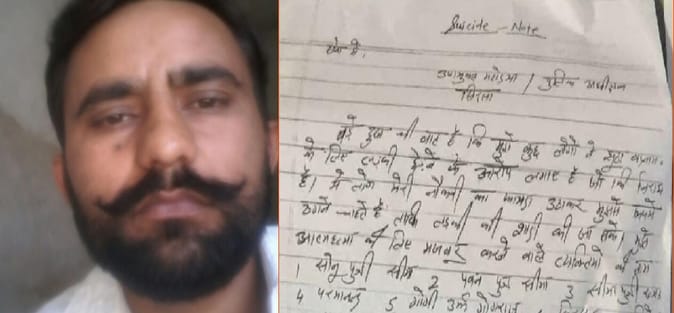 Suicide - Note
सेवा में,
उपायुक्त महोदया / पुलिस अधीक्षक
सिरसा
बड़े दुख की बात है कि मुझे कुछ लोगों ने झूठा
के लिए लड़की छेड़ने के आरोप लगाए है जो कि निराधार
है। ये लोग मेरी नौकरी का फायदा उठाकर मुझसे रूपये
ठगने चाहते हैं ताकि लड़की की शादी की जा सके। मुझे
आत्महत्या के लिए मजबूर करने वाले व्यक्तियों के नाम
1 सोनू पुत्री सीमा 2 पवन पुत्र सीमा 3 सीमा पुत्री
4 परमानन्द 5 गोगी उर्फ